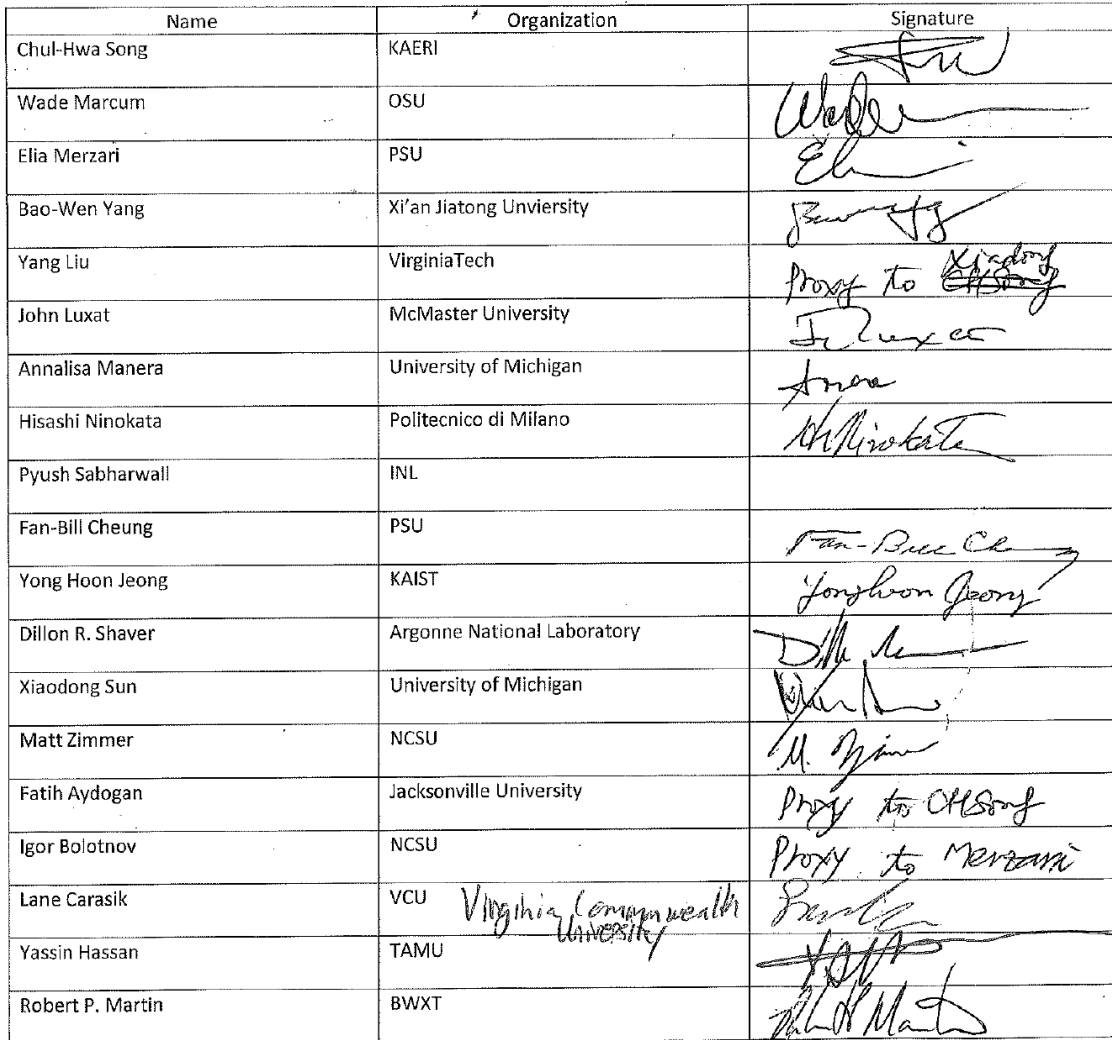 Name Organization Signature
Chul-Hwa Song KAERI
Wade Marcum OSU Wade
Elia Merzari PSU
Bao-Wen Yang Xi'an Jiatong Unviersity
Yang Liu VirginiaTech Proxy to Xiadong CHSong
John Luxat McMaster University J Luxat
Annalisa Manera University of Michigan
Hisashi Ninokata Politecnico di Milano H Ninokata
Pyush Sabharwall INL
Fan-Bill Cheung PSU Fan-Bill Cheung
Yong Hoon Jeong KAIST Yonghoon Jeong
Dillon R. Shaver Argonne National Laboratory
Xiaodong Sun University of Michigan
Matt Zimmer NCSU M. Zimmer
Fatih Aydogan Jacksonville University Proxy to CHSong
Igor Bolotnov NCSU Proxy to Merzari
Lane Carasik VCU Virginia Commonwealth
University
Yassin Hassan TAMU
Robert P. Martin BWXT